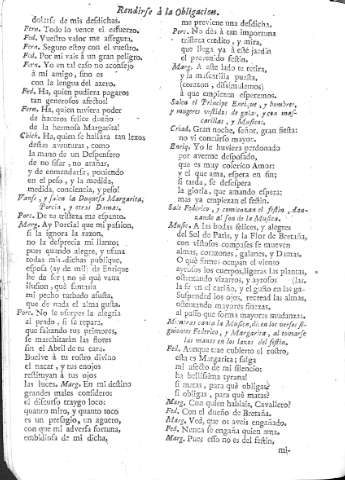 Rendirse à la Obligacion.
dolarse de mis desdichas.
Fern. Todo lo vence el esfuerzo.
Fed. Vuestro valor me assegura.
Fern. Seguro estoy con el vuestro.
Fed. Por mi vais à un gran peligro.
Fern. Yo en tal caso no aconsejo
à mi amigo, sino es
con la lengua del azero.
Fed. Ha, quien pudiera pagaros
tan generosos afectos!
Fern. Ha, quien tuviera poder
de haceros felice dueño
de la hermosa Margarita!
Chich. Ha, quien se hallàra tan lexos
destas aventuras, como
la mano de un Despensero
de no sisar, no arañar,
y de comendarse, poniendo
en el peso, y la medida,
medida, conciencia, y peso!
Vanse, y salen la Duquesa Margarita,
Porcia, y otras Damas.
Porc. De tu tristeza me espanto.
Marg. Ay Porcia! que mi passion,
si la ignora la razon,
no la desprecia mi llanto;
pues quando alegre, y ufana
todas mis dichas publique,
esposa (ay de mi!) de Enrique
he de ser; no sè què vana
ilusion, què fantasia
mi pecho turbado assusta,
que de nada el alma gusta.
Porc. No le usurpes la alegria
al prado, si fe repara,
que faltando tus primores,
se marchitaràn las flores
sin el Abril de tu cara.
Buelve à tu rostro divino
el nacar, y tus enojos
restituyan à tus ojos
las luces. Marg. En mi destino
grandes males considero:
el discurso traygo loco:
quanto miro, y quanto toco
es un presagio, un aguero,
con que mi adversa fortuna,
embidiosa de mi dicha,
me previene una desdicha.
Porc. No dès à tan importuna
tristeza credito, y mira,
que llega yà à este jardin
el prevenido festin.
Marg. A este lado te retira,
y la mascarilla puesta,
(corazon, dissimulemos)
à que empiecen esperemos.
Salen el Principe Enrique, y hombres,
y mugeres vestidos de gala, y con mascarillas,
y Musicos.
Criad. Gran noche, señor, gran fiesta:
no vì concurso mayor.
Enriq. Yo le huviera perdonado
por averme desposado,
que es muy colerico Amor:
y el que ama, espera en fin;
si tarda, se desespera
la gloria, que amando espera:
mas yà empiezan el festin.
Sale Federico, y comienzan el festin, danzando
al son de la Musica.
Music. A las bodas felices, y alegres
del Sol de Paris, y la Flor de Bretaña,
con vistosos compases se mueven
almas, corazones, galanes, y Damas.
O què firmes ocupan el viento
ayrosos los cuerpos, ligeras las plantas,
ostentando vizarros, y ayrosos
la fe en el cariño, y el gusto en las galas.
Suspended los ojos, recread las almas,
ofrntando mayores finezas,
al passo que forma mayores mudanzas.
Mientras canta la Musica, dicen los versos siguientes
Federico, y Margarita, al tomarse
las manos en los lazos del festin.
Fed. Aunque trae cubierto el rostro,
esta es Margarita: salga
mi afecto de mi silencio:
ha bellissima tyrana!
si matas, para què obligas?
si obligas, para què matas?
Marg. Con quien hablais, Cavallero?
Fed. Con el dueño de Bretaña.
Marg. Ved, que os aveis engañado.
Fed. Nunca se engaña quien ama.
Marg. Pues esso no es del festin,
mi-